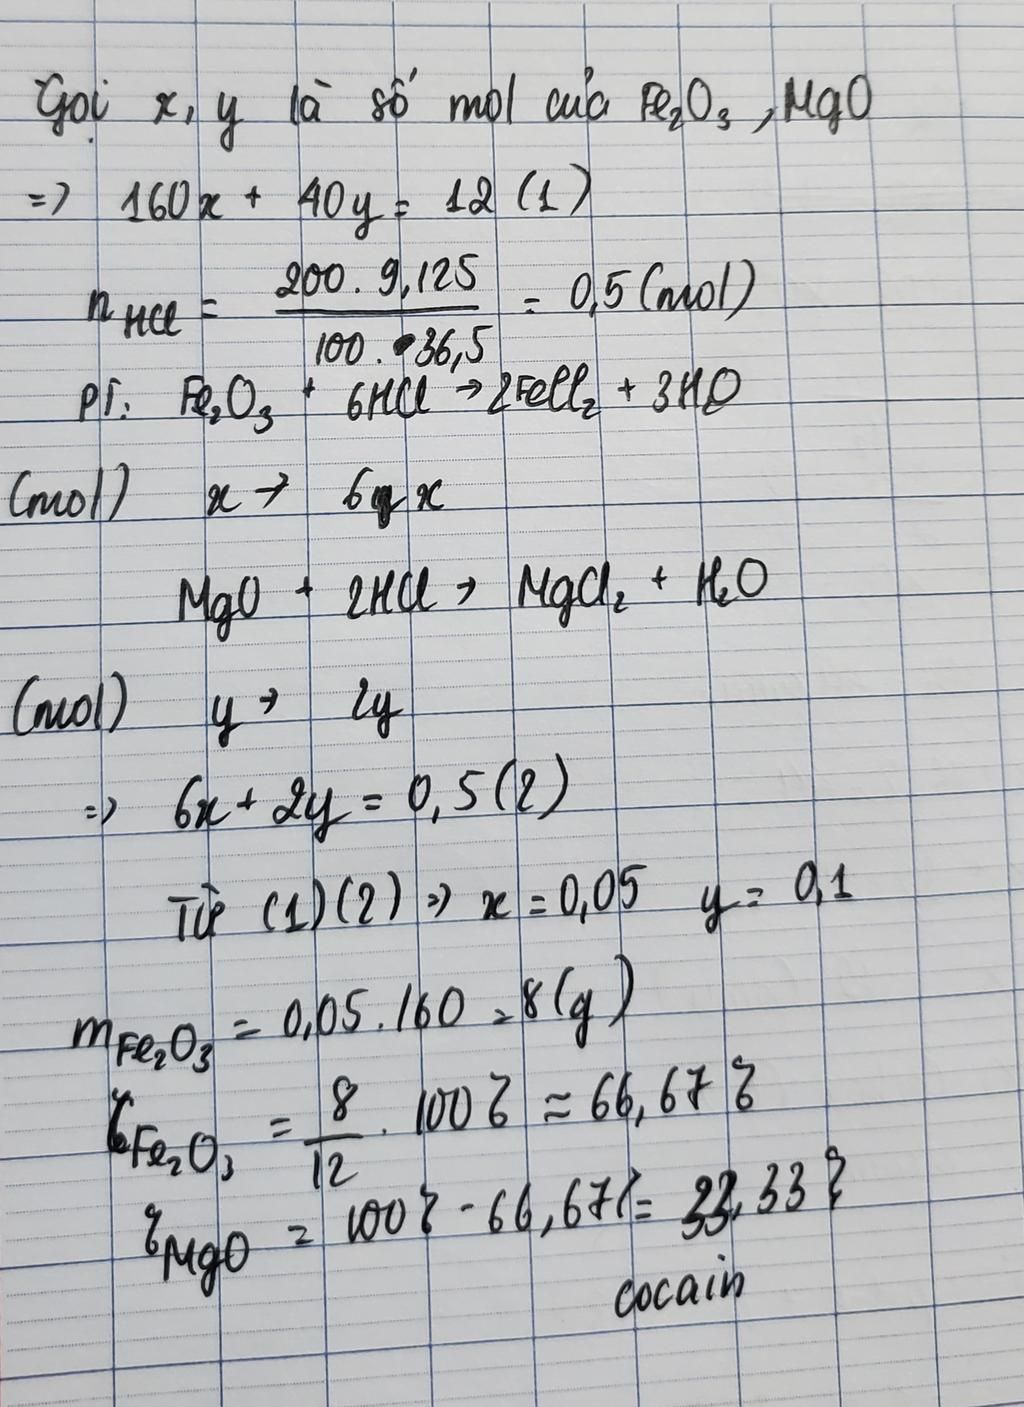 Gọi x, y là số mol của Fe₂O₃, MgO
=> 160x + 40y = 12 (1)
n HCl = 200 . 9,125 / 100 . 36,5 = 0,5 (mol)
PT: Fe₂O₃ + 6HCl → 2FeCl₂ + 3HO
(mol) x → 6x
MgO + 2HCl → MgCl₂ + H₂O
(mol) y → 2y
=> 6x + 2y = 0,5 (2)
Từ (1)(2) => x = 0,05 y = 0,1
m Fe₂O₃ = 0,05 . 160 = 8 (g)
% Fe₂O₃ = 8/12 . 100% ≈ 66,67%
% MgO = 100% - 66,67% = 33,33%
cocain